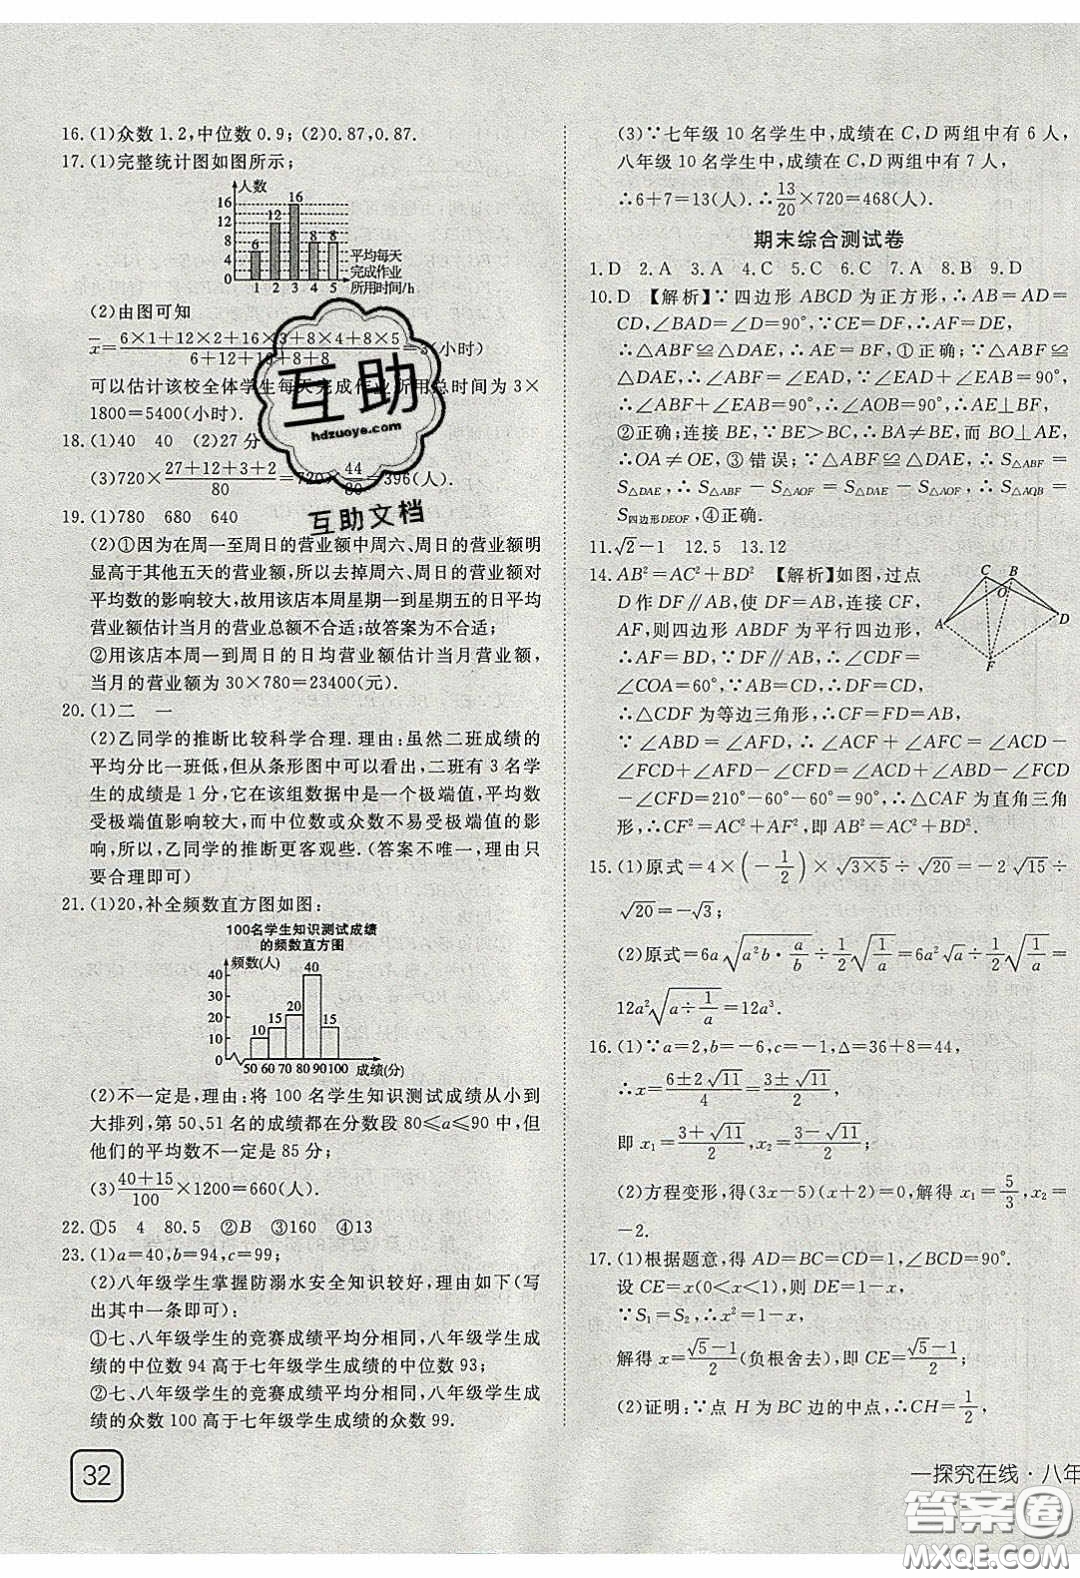 16.(1)众数1.2,中位数0.9;(2)0.87,0.87.
17.(1)完整统计图如图所示;
人数
16
14
12
10
8
6
4
2
6 12 16 8 8
1 2 3 4 5
平均每天
完成作业
所用时间/h
(2)由图可知
x̄=(6×1+12×2+16×3+8×4+8×5)/(6+12+16+8+8)=3(小时)
可以估计该校全体学生每天完成作业所用总时间为3×
1800=5400(小时).
18.(1)40 40 (2)27分
(3)720×(27+12+3+2)/80=720×44/80=396(人).
19.(1)780 680 640
(2)①因为在周一至周日的营业额中周六、周日的营业额明
显高于其他五天的营业额,所以去掉周六、周日的营业额对
平均数的影响较大,故用该店本周星期一到星期五的日平均
营业额估计当月的营业总额不合适;故答案为不合适;
②用该店本周一到周日的日均营业额估计当月营业额,
当月的营业额为30×780=23400(元).
20.(1)二 一
(2)乙同学的推断比较科学合理.理由:虽然二班成绩的
平均分比一班低,但从条形图中可以看出,二班有3名学
生的成绩是1分,它在该组数据中是一个极端值,平均数
受极端值影响较大,而中位数或众数不易受极端值的影
响,所以,乙同学的推断更客观些.(答案不唯一,理由只
要合理即可)
21.(1)20,补全频数直方图如图:
100名学生知识测试成绩
的频数直方图
频数(人)
40
30
20
10
0
10 15 20 40 15
50 60 70 80 90 100 成绩(分)
(2)不一定是,理由:将100名学生知识测试成绩从小到
大排列,第50、51名的成绩都在分数段80≤a≤90中,但
他们的平均数不一定是85分;
(3)(40+15)/100×1200=660(人).
22.①5 4 80.5 ②B ③160 ④13
23.(1)a=40,b=94,c=99;
(2)八年级学生掌握防溺水安全知识较好,理由如下(写
出其中一条即可):
①七、八年级学生的竞赛成绩平均分相同,八年级学生成
绩的中位数94高于七年级学生成绩的中位数93;
②七、八年级学生的竞赛成绩平均分相同,八年级学生成
绩的众数100高于七年级学生成绩的众数99.
32
(3)∵七年级10名学生中,成绩在C,D两组中有6人,
八年级10名学生中,成绩在C,D两组中有7人,
∴6+7=13(人).∴13/20×720=468(人).
期末综合测试卷
1.D 2.A 3.A 4.C 5.C 6.C 7.A 8.B 9.D
10.D 【解析】∵四边形ABCD为正方形,∴AB=AD=
CD,∠BAD=∠D=90°,∵CE=DF,∴AF=DE,
∴△ABF≌△DAE,∴AE=BF,①正确;∵△ABF≌
△DAE,∴∠ABF=∠EAD,∵∠EAD+∠EAB=90°,
∴∠ABF+∠EAB=90°,∴∠AOB=90°,∴AE⊥BF,
②正确;连接BE,∵BE>BC,∴BA≠BE,而BO⊥AE,
∴OA≠OE,③错误;∵△ABF≌△DAE,∴S△ABF=
S△DAE,∴S△ABF−S△AOF=S△DAE−S△AOF,∴S△AOB=
S四边形DEOF,④正确.
11.√2−1 12.5 13.12
14.AB²=AC²+BD² 【解析】如图,过点
D作DF∥AB,使DF=AB,连接CF,
AF,则四边形ABDF为平行四边形,
∴AF=BD,∵DF∥AB,∴∠CDF=
∠COA=60°,∵AB=CD,∴DF=CD,
∴△CDF为等边三角形,∴CF=CD=AB,
∵∠ABD=∠AFD,∴∠ACF+∠AFC=∠ACD+
∠FCD+∠AFD−∠CFD=∠ACD+∠FCD+∠ABD
−∠CFD=210°−60°−60°=90°,∴△CAF为直角三角
形,∴CF²=AC²+AF²,即AB²=AC²+BD².
C B
O
A D
F
15.(1)原式=4×(−1/2)×√(3×5)÷√20=−2√15÷
√20=−√3;
(2)原式=6a√(a²b·a/b)÷1/2√(1/a)=6a²√a÷1/2√(1/a)=
12a²√(a÷1/a)=12a³.
16.(1)∵a=2,b=−6,c=−1,Δ=36+8=44,
∴x=(6±2√11)/4=(3±√11)/2,
即x₁=(3+√11)/2,x₂=(3−√11)/2;
(2)方程变形,得(3x−5)(x+2)=0,解得x₁=5/3,x₂=
−2.
17.(1)根据题意,得AD=BC=CD=1,∠BCD=90°.
设CE=x(0<x<1),则DE=1−x,
∵S₁=S₂,∴x²=1−x,
解得x=(√5−1)/2(负根舍去),即CE=(√5−1)/2;
(2)证明:∵点H为BC边的中点,∴CH=1/2,
一探究在线·八年
互助
hdzuoye.com
互助文档
答案圈
MXQE.COM